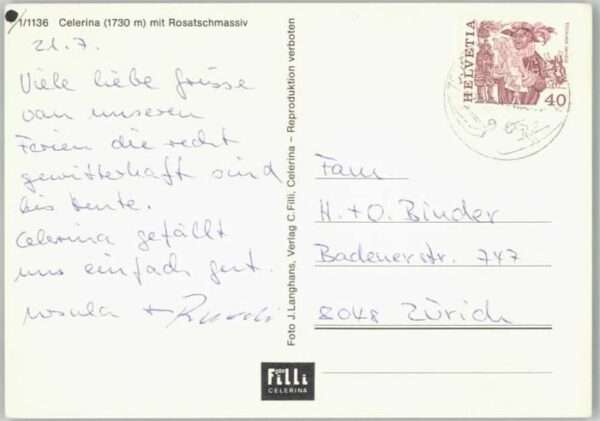 1/1136 Celerina (1730 m) mit Rosatschmassiv
21.7.
Viele liebe Grüsse
von unseren
Ferien die recht
gewitterhaft sind
bis heute.
Celerina gefällt
uns einfach gut.
Ursula + Ruedi
Foto J. Langhans, Verlag C. Filli, Celerina – Reproduktion verboten
HELVETIA
40
Fam
H. + O. Binder
Badenerstr. 747
8048 Zürich
Filli
CELERINA